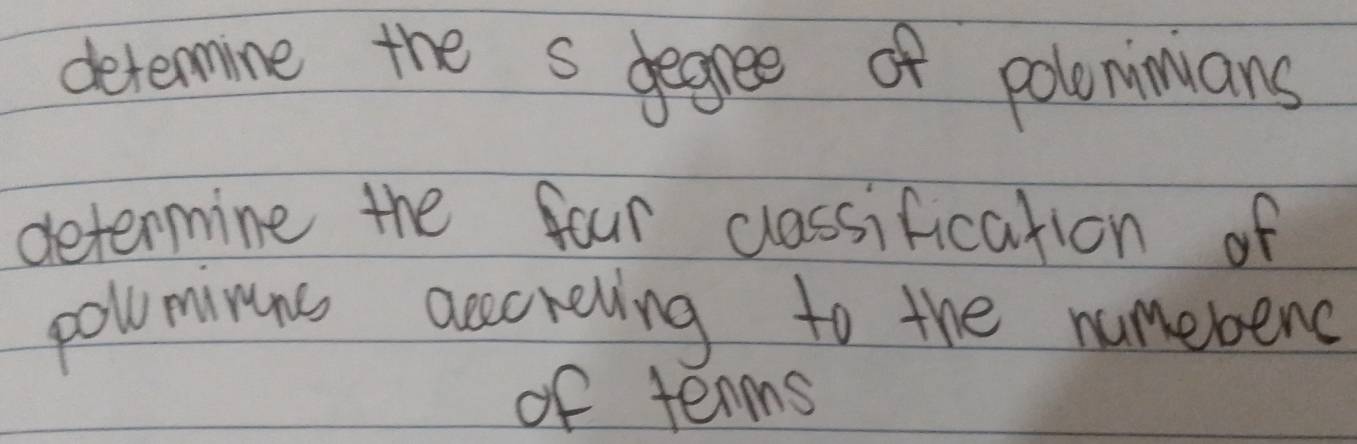 determine the s degree of polynimians
determine the four classification of
polymirync accoreling to the numebenc
of terms